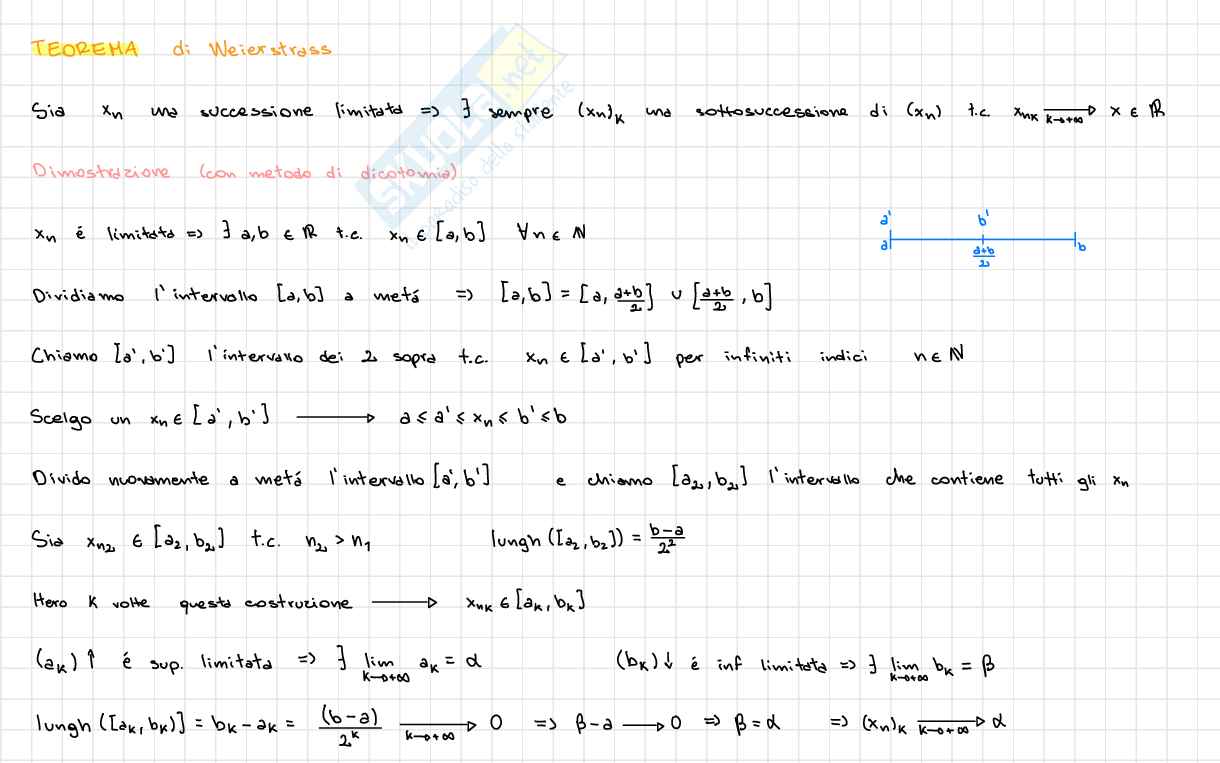 TEOREMA di Weierstrass
Sia xₙ una successione limitata => ∃ sempre (xₙ)ₖ una sottosuccessione di (xₙ) t.c. xₙₖ ⟶ (k→+∞) x ∈ ℝ
Dimostrazione (con metodo di dicotomia)
xₙ é limitata => ∃ a,b ∈ ℝ t.c. xₙ ∈ [a,b] ∀n ∈ ℕ
a' b'
a (a+b)/2 b
Dividiamo l'intervallo [a,b] a metá => [a,b] = [a, (a+b)/2] ∪ [(a+b)/2, b]
Chiamo [a',b'] l'intervallo dei 2 sopra t.c. xₙ ∈ [a',b'] per infiniti indici n ∈ ℕ
Scelgo un xₙ ∈ [a',b'] ⟶ a ≤ a' ≤ xₙ ≤ b' ≤ b
Divido nuovamente a metá l'intervallo [a',b'] e chiamo [a₂,b₂] l'intervallo che contiene tutti gli xₙ
Sia xₙ₂ ∈ [a₂,b₂] t.c. n₂ > n₁ lungh ([a₂,b₂]) = (b-a)/2²
Itero K volte questa costruzione ⟶ xₙₖ ∈ [aₖ,bₖ]
(aₖ)↑ é sup. limitata => ∃ lim (k→+∞) aₖ = α (bₖ)↓ é inf limitata => ∃ lim (k→+∞) bₖ = β
lungh ([aₖ,bₖ)] = bₖ - aₖ = (b-a)/2ᵏ ⟶ (k→+∞) 0 => β-a ⟶ 0 => β = α => (xₙ)ₖ ⟶ (k→+∞) α
SKUOLA.net
il paradiso dello studente